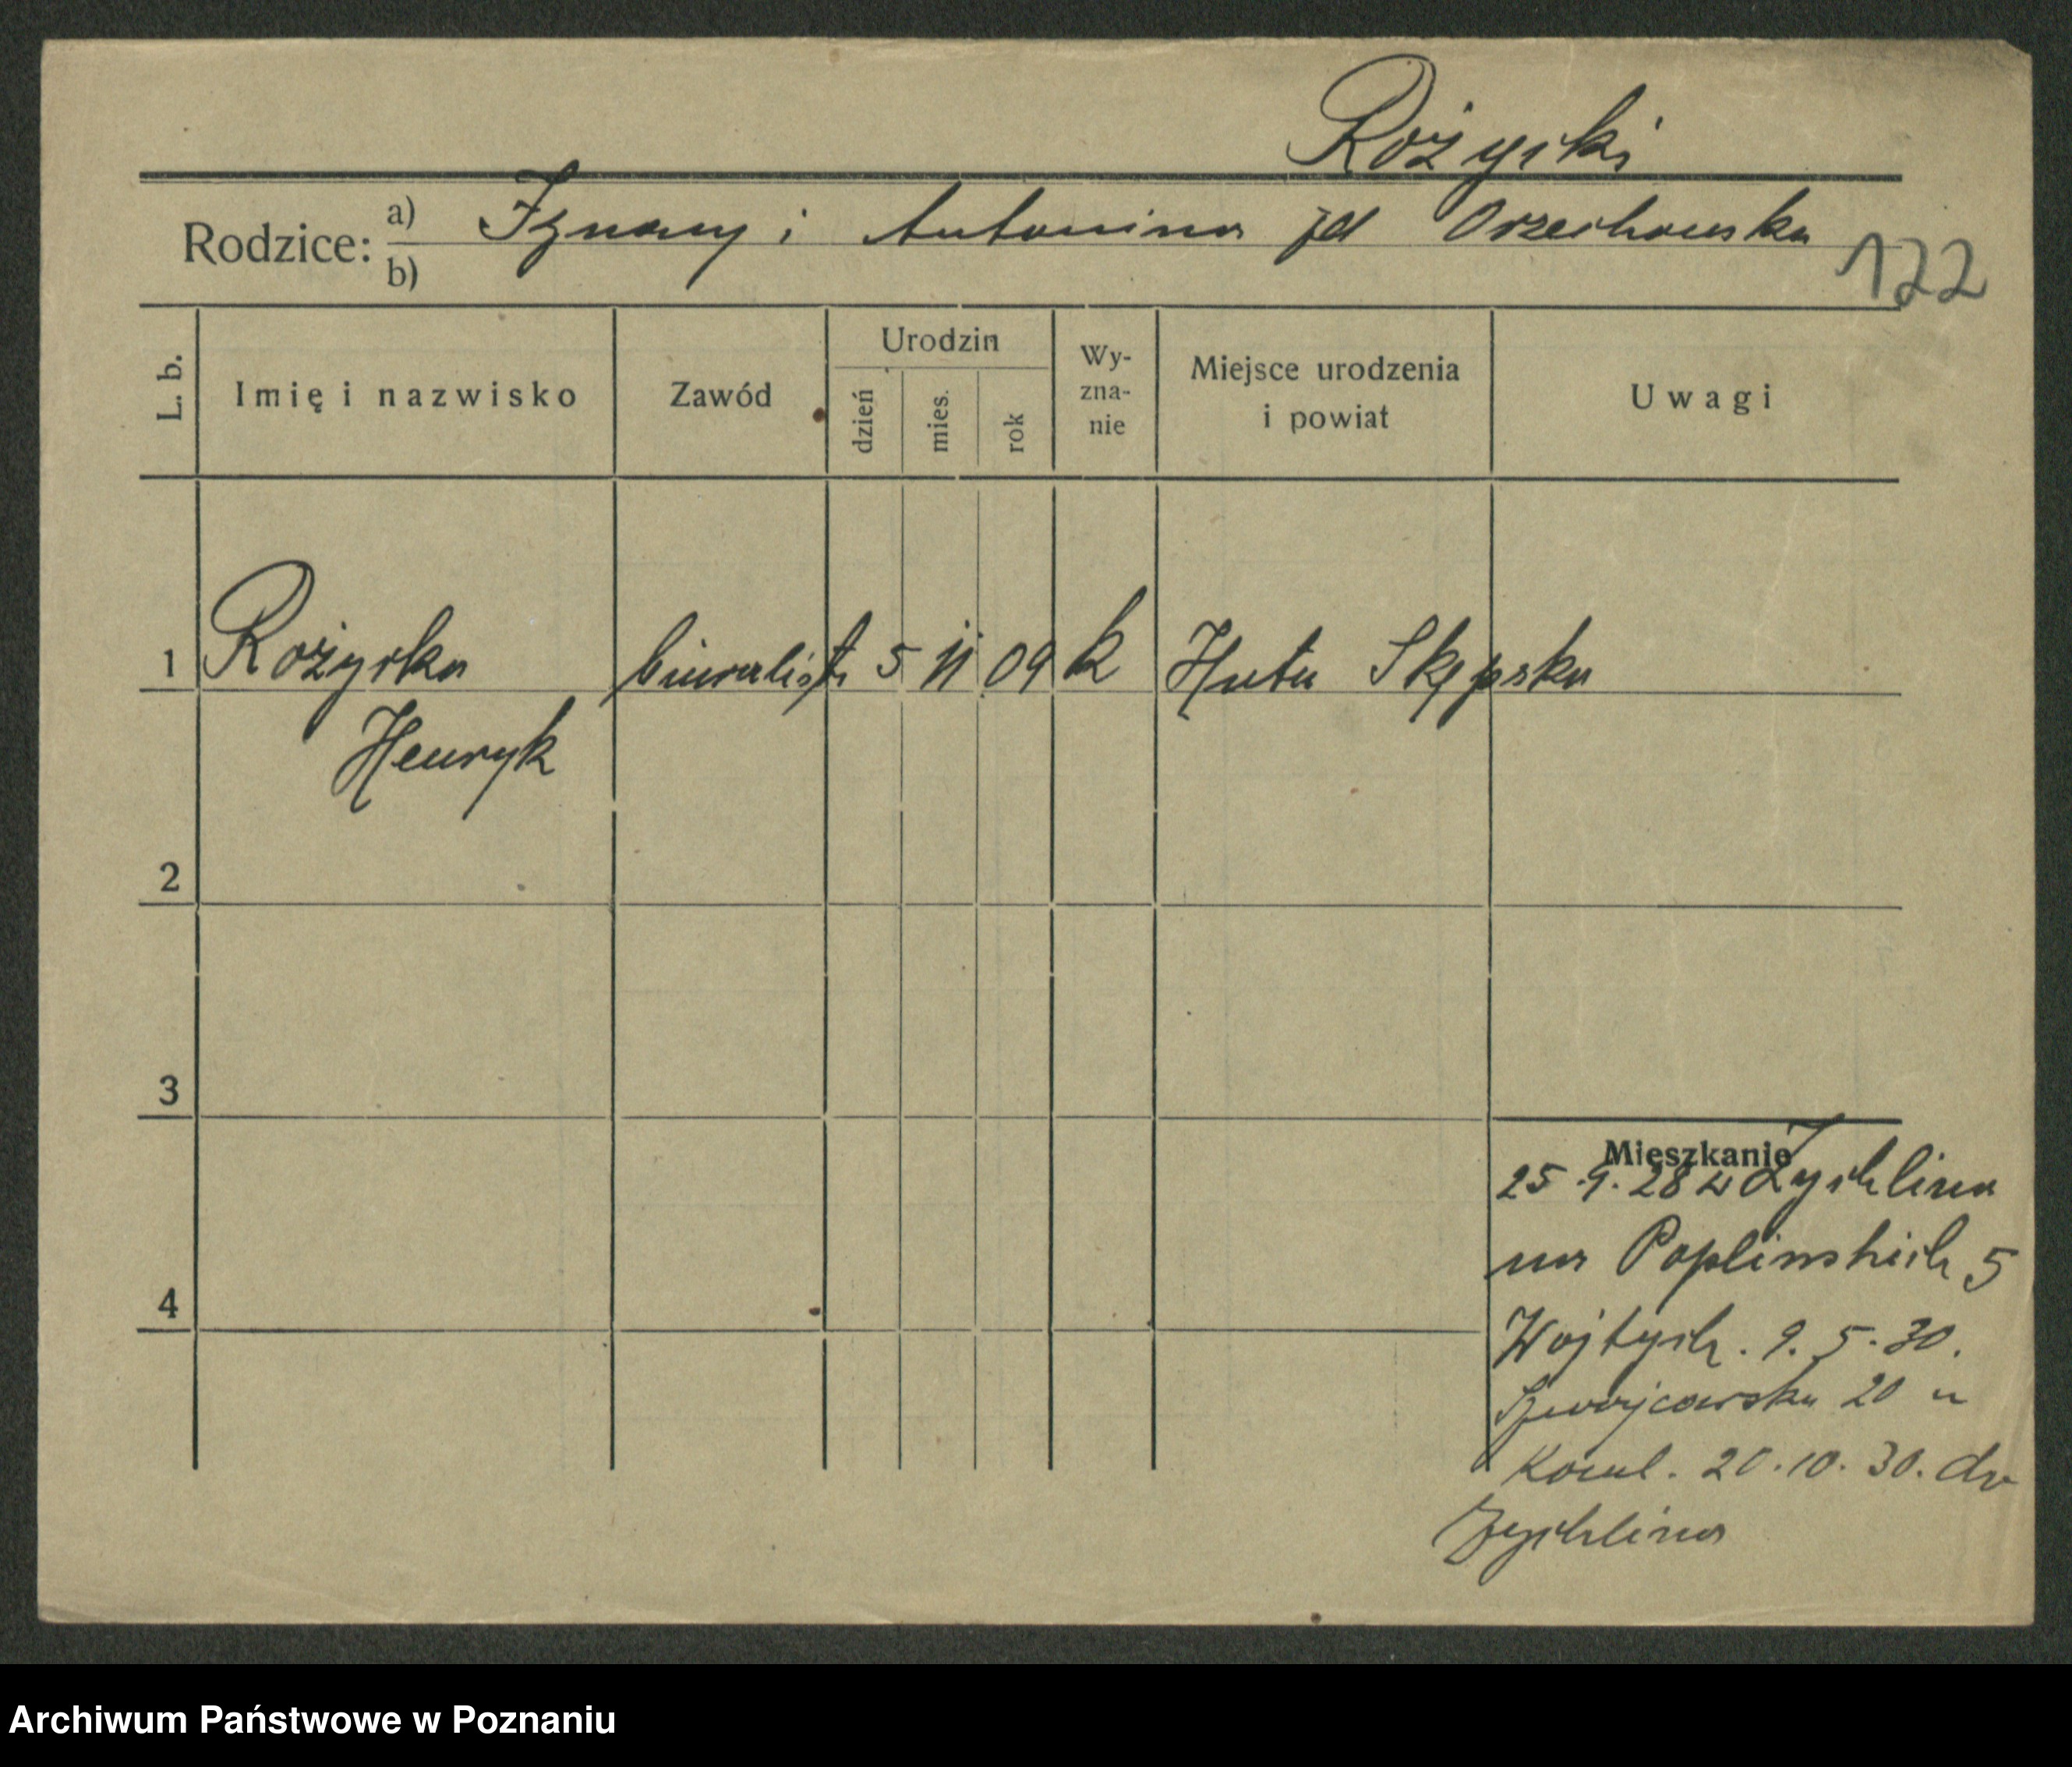 Rożycki
Rodzice: a) Ignacy i Antonina zd Orzechowska
b)
122
L. b.
Imię i nazwisko
Zawód
Urodzin
dzień
mies.
rok
Wy-
zna-
nie
Miejsce urodzenia
i powiat
Uwagi
1 Rożycka biuralista 5 11 09 k Huta Skępska
Henryk
2
3
4
Mieszkanie
25.9.28 z Żychlina
na Poplinskich 5
Wojtych. 9.5.30.
20 u
Kowal. 20.10.30. do
Zychlina
Archiwum Państwowe w Poznaniu